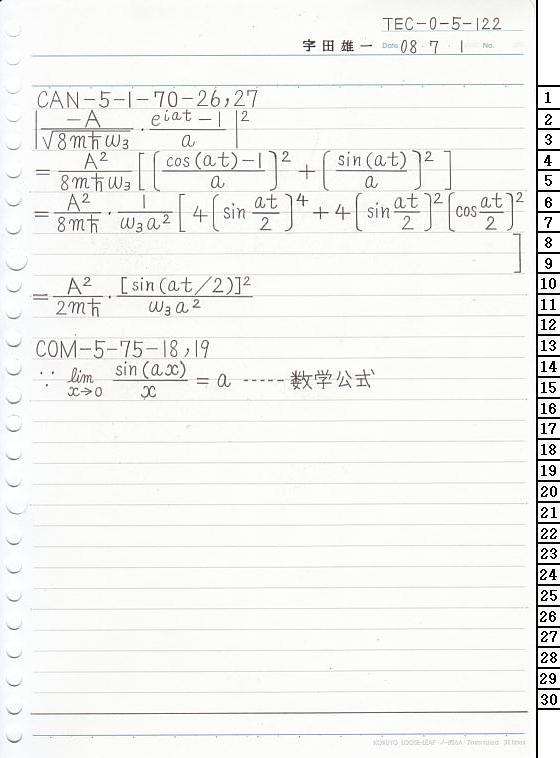 TEC-0-5-122
宇田雄一 Date 08・7・1 No.
CAN-5-1-70-26,27
|-A/√(8mℏω₃)・(e^{iat}-1)/a|²
=A²/(8mℏω₃)[((cos(at)-1)/a)²+(sin(at)/a)²]
=A²/(8mℏ)・1/(ω₃a²)[4(sin at/2)⁴+4(sin at/2)²(cos at/2)²
]
=A²/(2mℏ)・[sin(at/2)]²/(ω₃a²)
COM-5-75-18,19
∵ lim_{x→0} sin(ax)/x = a ----- 数学公式
1
2
3
4
5
6
7
8
9
10
11
12
13
14
15
16
17
18
19
20
21
22
23
24
25
26
27
28
29
30
KOKUYO LOOSE-LEAF ノ-836A 7mm ruled 31 lines